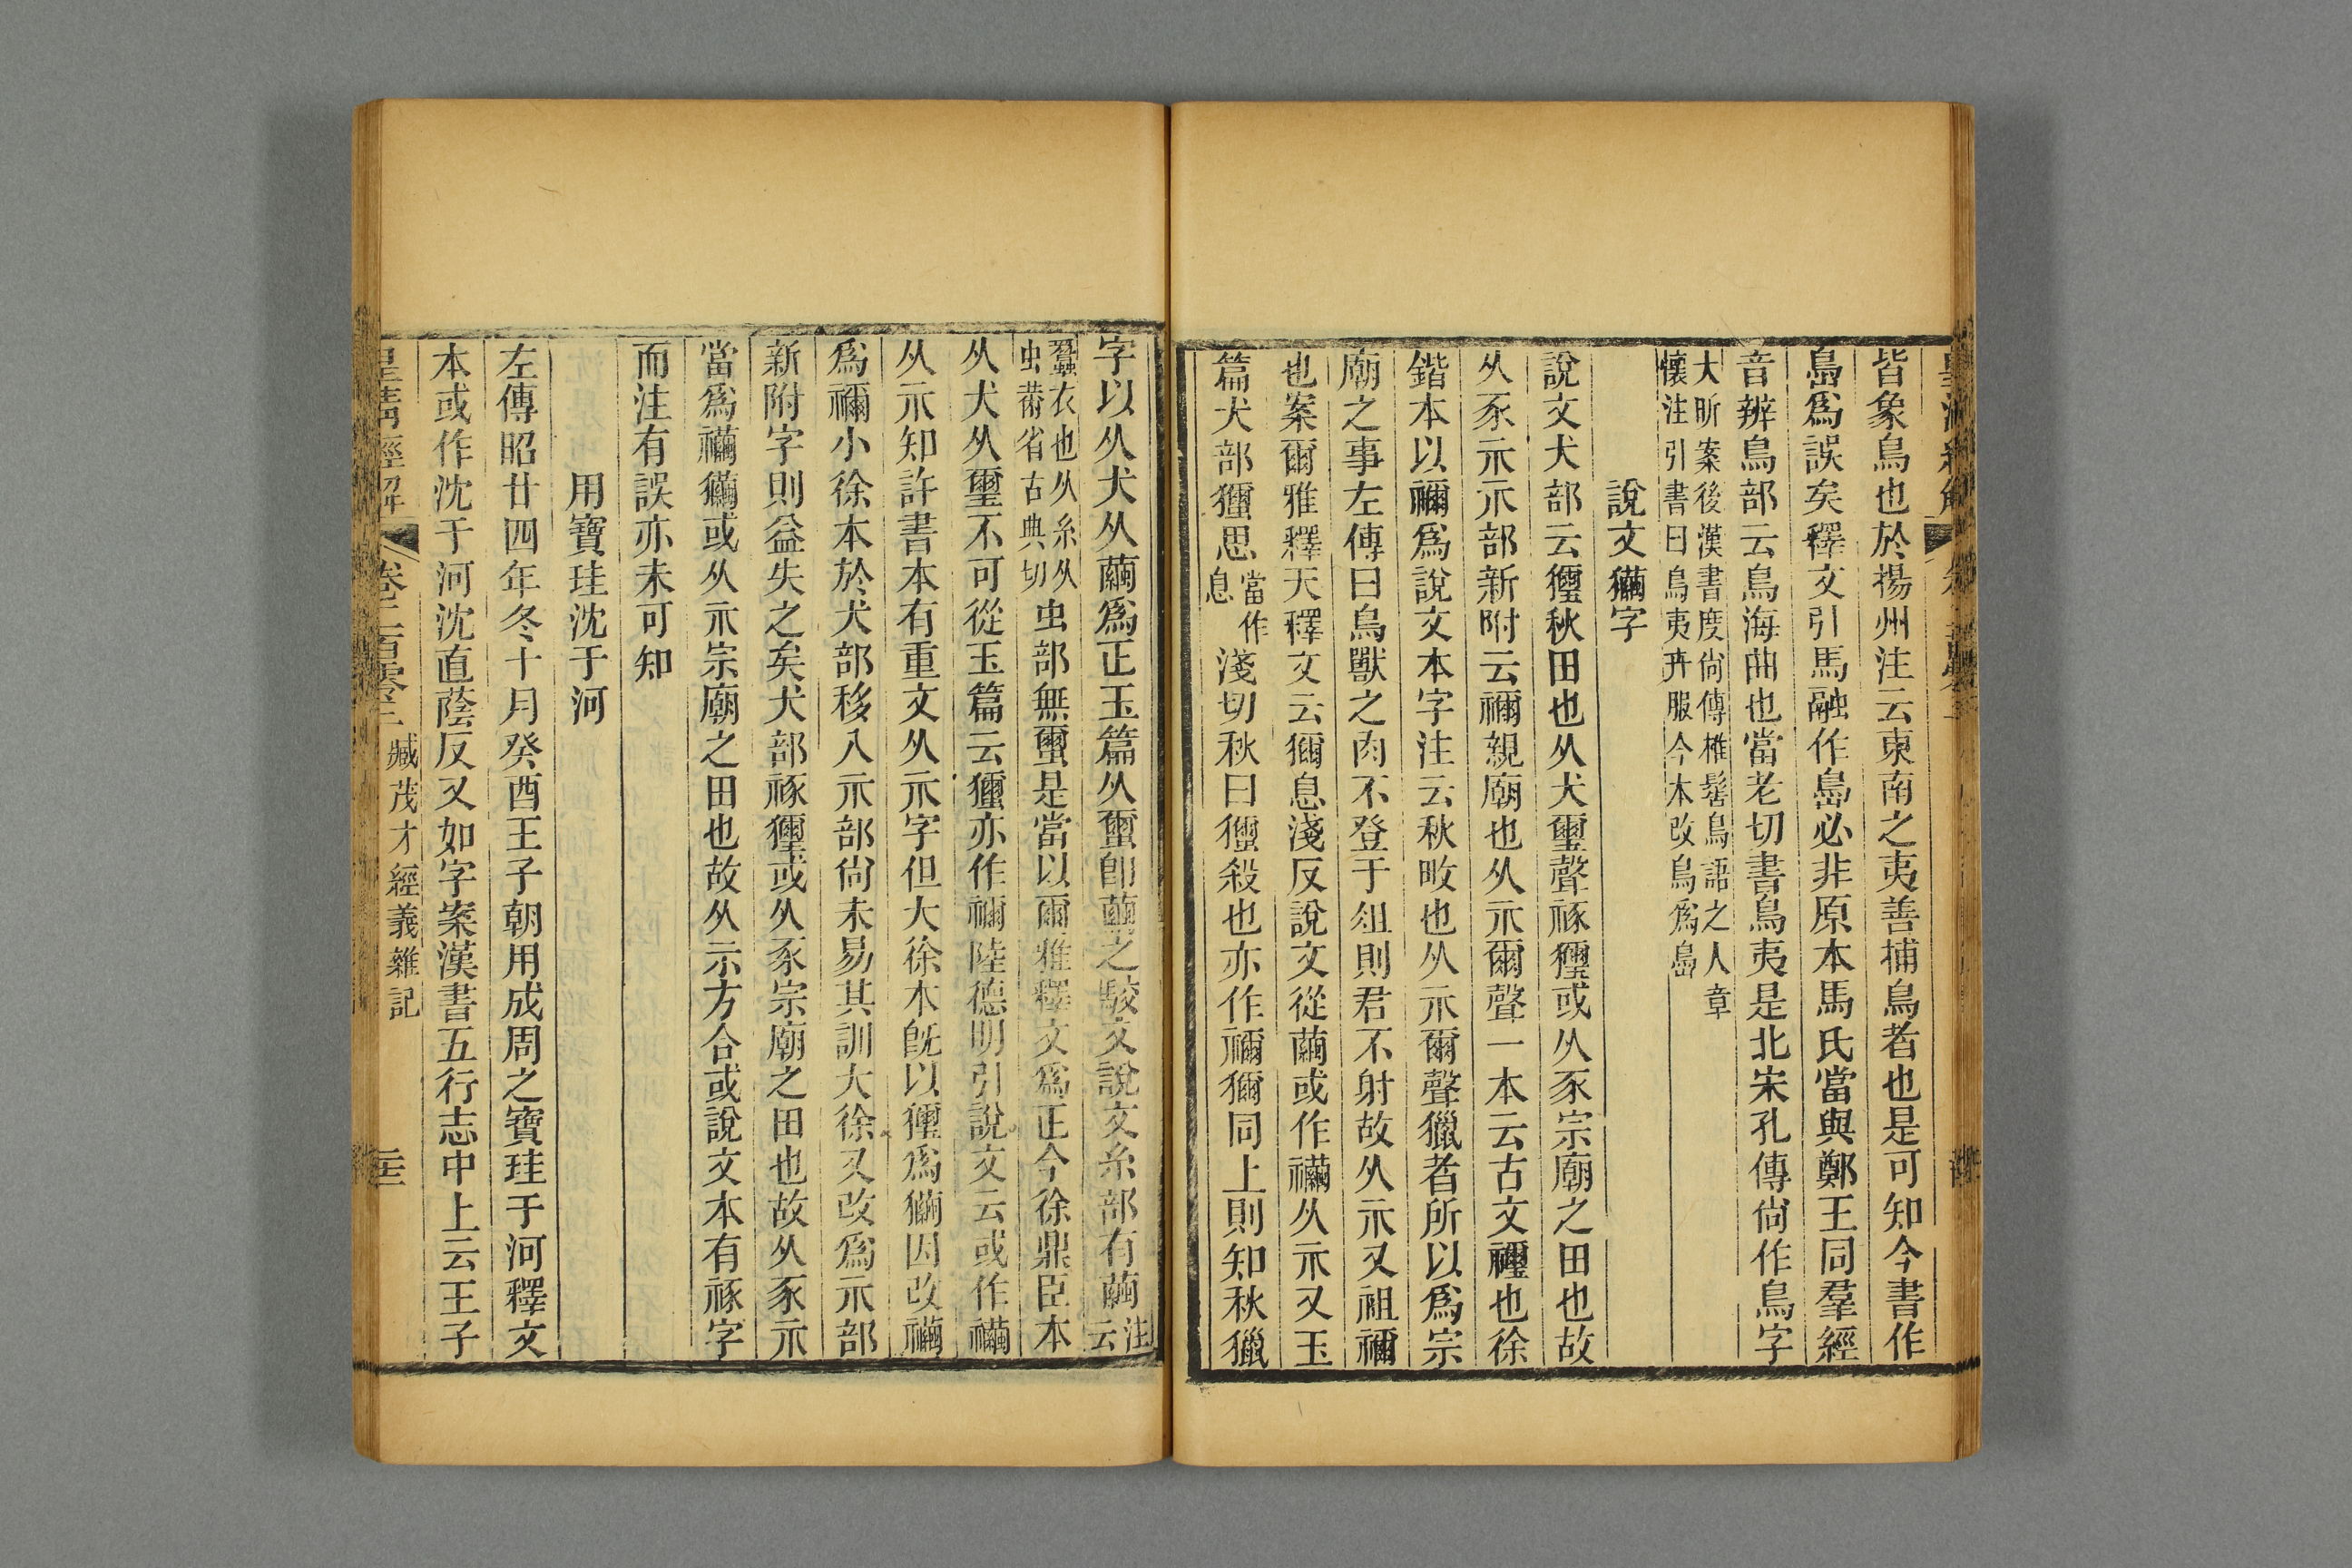 皆象鳥也於揚州注云東南之夷善捕鳥者也是可知今書作
島爲誤矣釋文引馬融作島必非原本馬氏當與鄭王同羣經
音辨鳥部云鳥海曲也當老切書鳥夷是北宋孔傳尙作鳥字
大昕案後漢書度尙傳椎髻鳥語之人章
懷注引書曰鳥夷卉服今本改鳥爲島
說文𤣓字
說文犬部云玃秋田也从犬璽聲䂕玃或从豕宗廟之田也故
从豕示示部新附云禰親廟也从示爾聲一本云古文𥜬也徐
鍇本以禰爲說文本字注云秋畋也从示爾聲獵者所以爲宗
廟之事左傳曰鳥獸之肉不登于俎則君不射故从示又祖禰
也案爾雅釋天釋文云獮息淺反說文從繭或作襺从示又玉
篇犬部㺯思
當作
息
淺切秋曰㺯殺也亦作禰獮同上則知秋獵
字以从犬从繭爲正玉篇从蠒卽繭之駮文說文糸部有繭
注
云
蠶衣也从糸从
虫黹省古典切
虫部無蠒是當以爾雅釋文爲正今徐鼎臣本
从犬从璽不可從玉篇云㺯亦作禰陸德明引說文云或作襺
从示知許書本有重文从示字但大徐本旣以㺯爲𤣓因改襺
爲禰小徐本於犬部移入示部尙未易其訓大徐又改爲示部
新附字則益失之矣犬部䂕㺯或从豕宗廟之田也故从豕示
當爲襺𤣓或从示宗廟之田也故从示方合或說文本有䂕字
而注有誤亦未可知
用寶珪沈于河
左傳昭廿四年冬十月癸酉王子朝用成周之寶珪于河釋文
本或作沈于河沈直蔭反又如字案漢書五行志中上云王子
皇淸經解
卷二百零三
臧茂才經義雜記